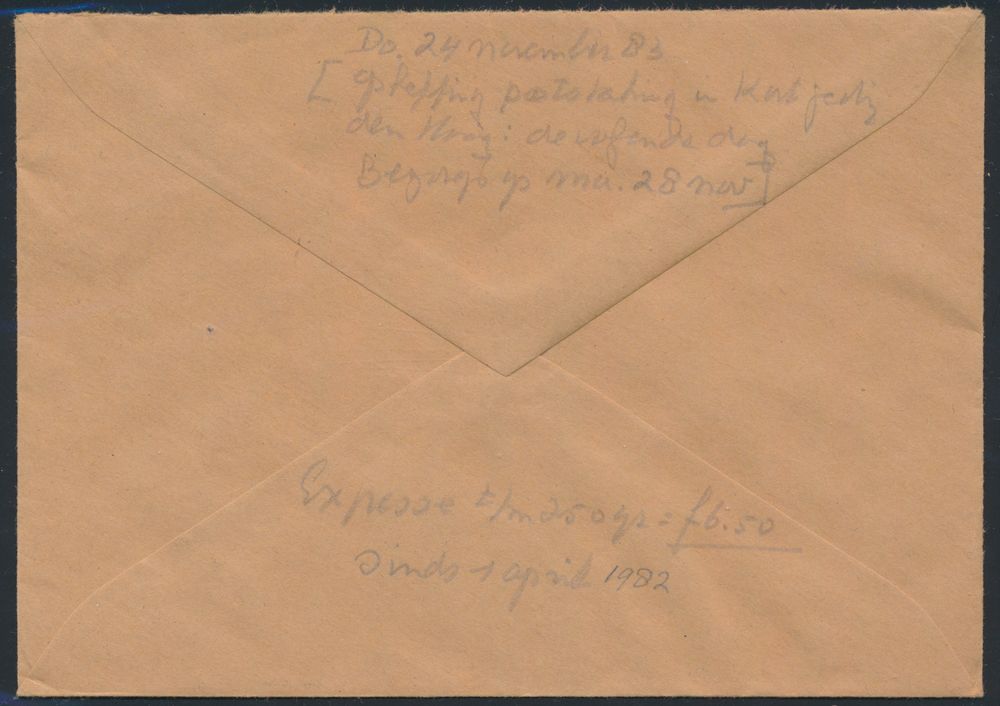 Do. 24 november 83
[opheffing poststaking in Kort geding
den Haag: de volgende dag
Bezorgd op ma. 28 nov]
Expresse t/m 250 gr = f 6.50
Sinds 1 april 1982